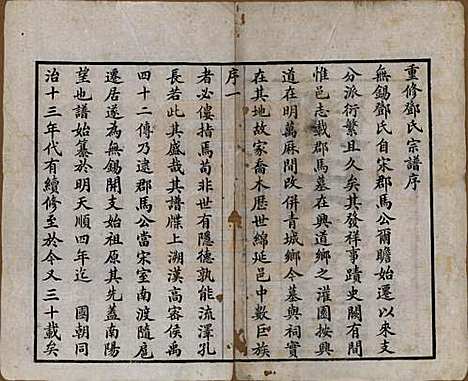 重修鄧氏宗譜序
無錫鄧氏自宋郡馬公爾瞻始遷以來支
分派衍繁且久矣其發祥事蹟史闕有間
惟邑志載郡馬墓在興道鄉之灌園按興
道在明萬厤間改併青城鄉今墓與祠實
在其地故家喬木歷世綿延邑中數巨族
序一
者必僂指焉苟非世有隱德孰能流澤孔
長若此其盛哉其譜牒上溯漢高密侯禹
四十二傳乃逮郡馬公當宋室南渡隨扈
遷居遂為無錫開支始祖原其先蓋南陽
望也譜始纂於明天順四年迄 國朝同
治十三年代有續修至於今又三十載矣